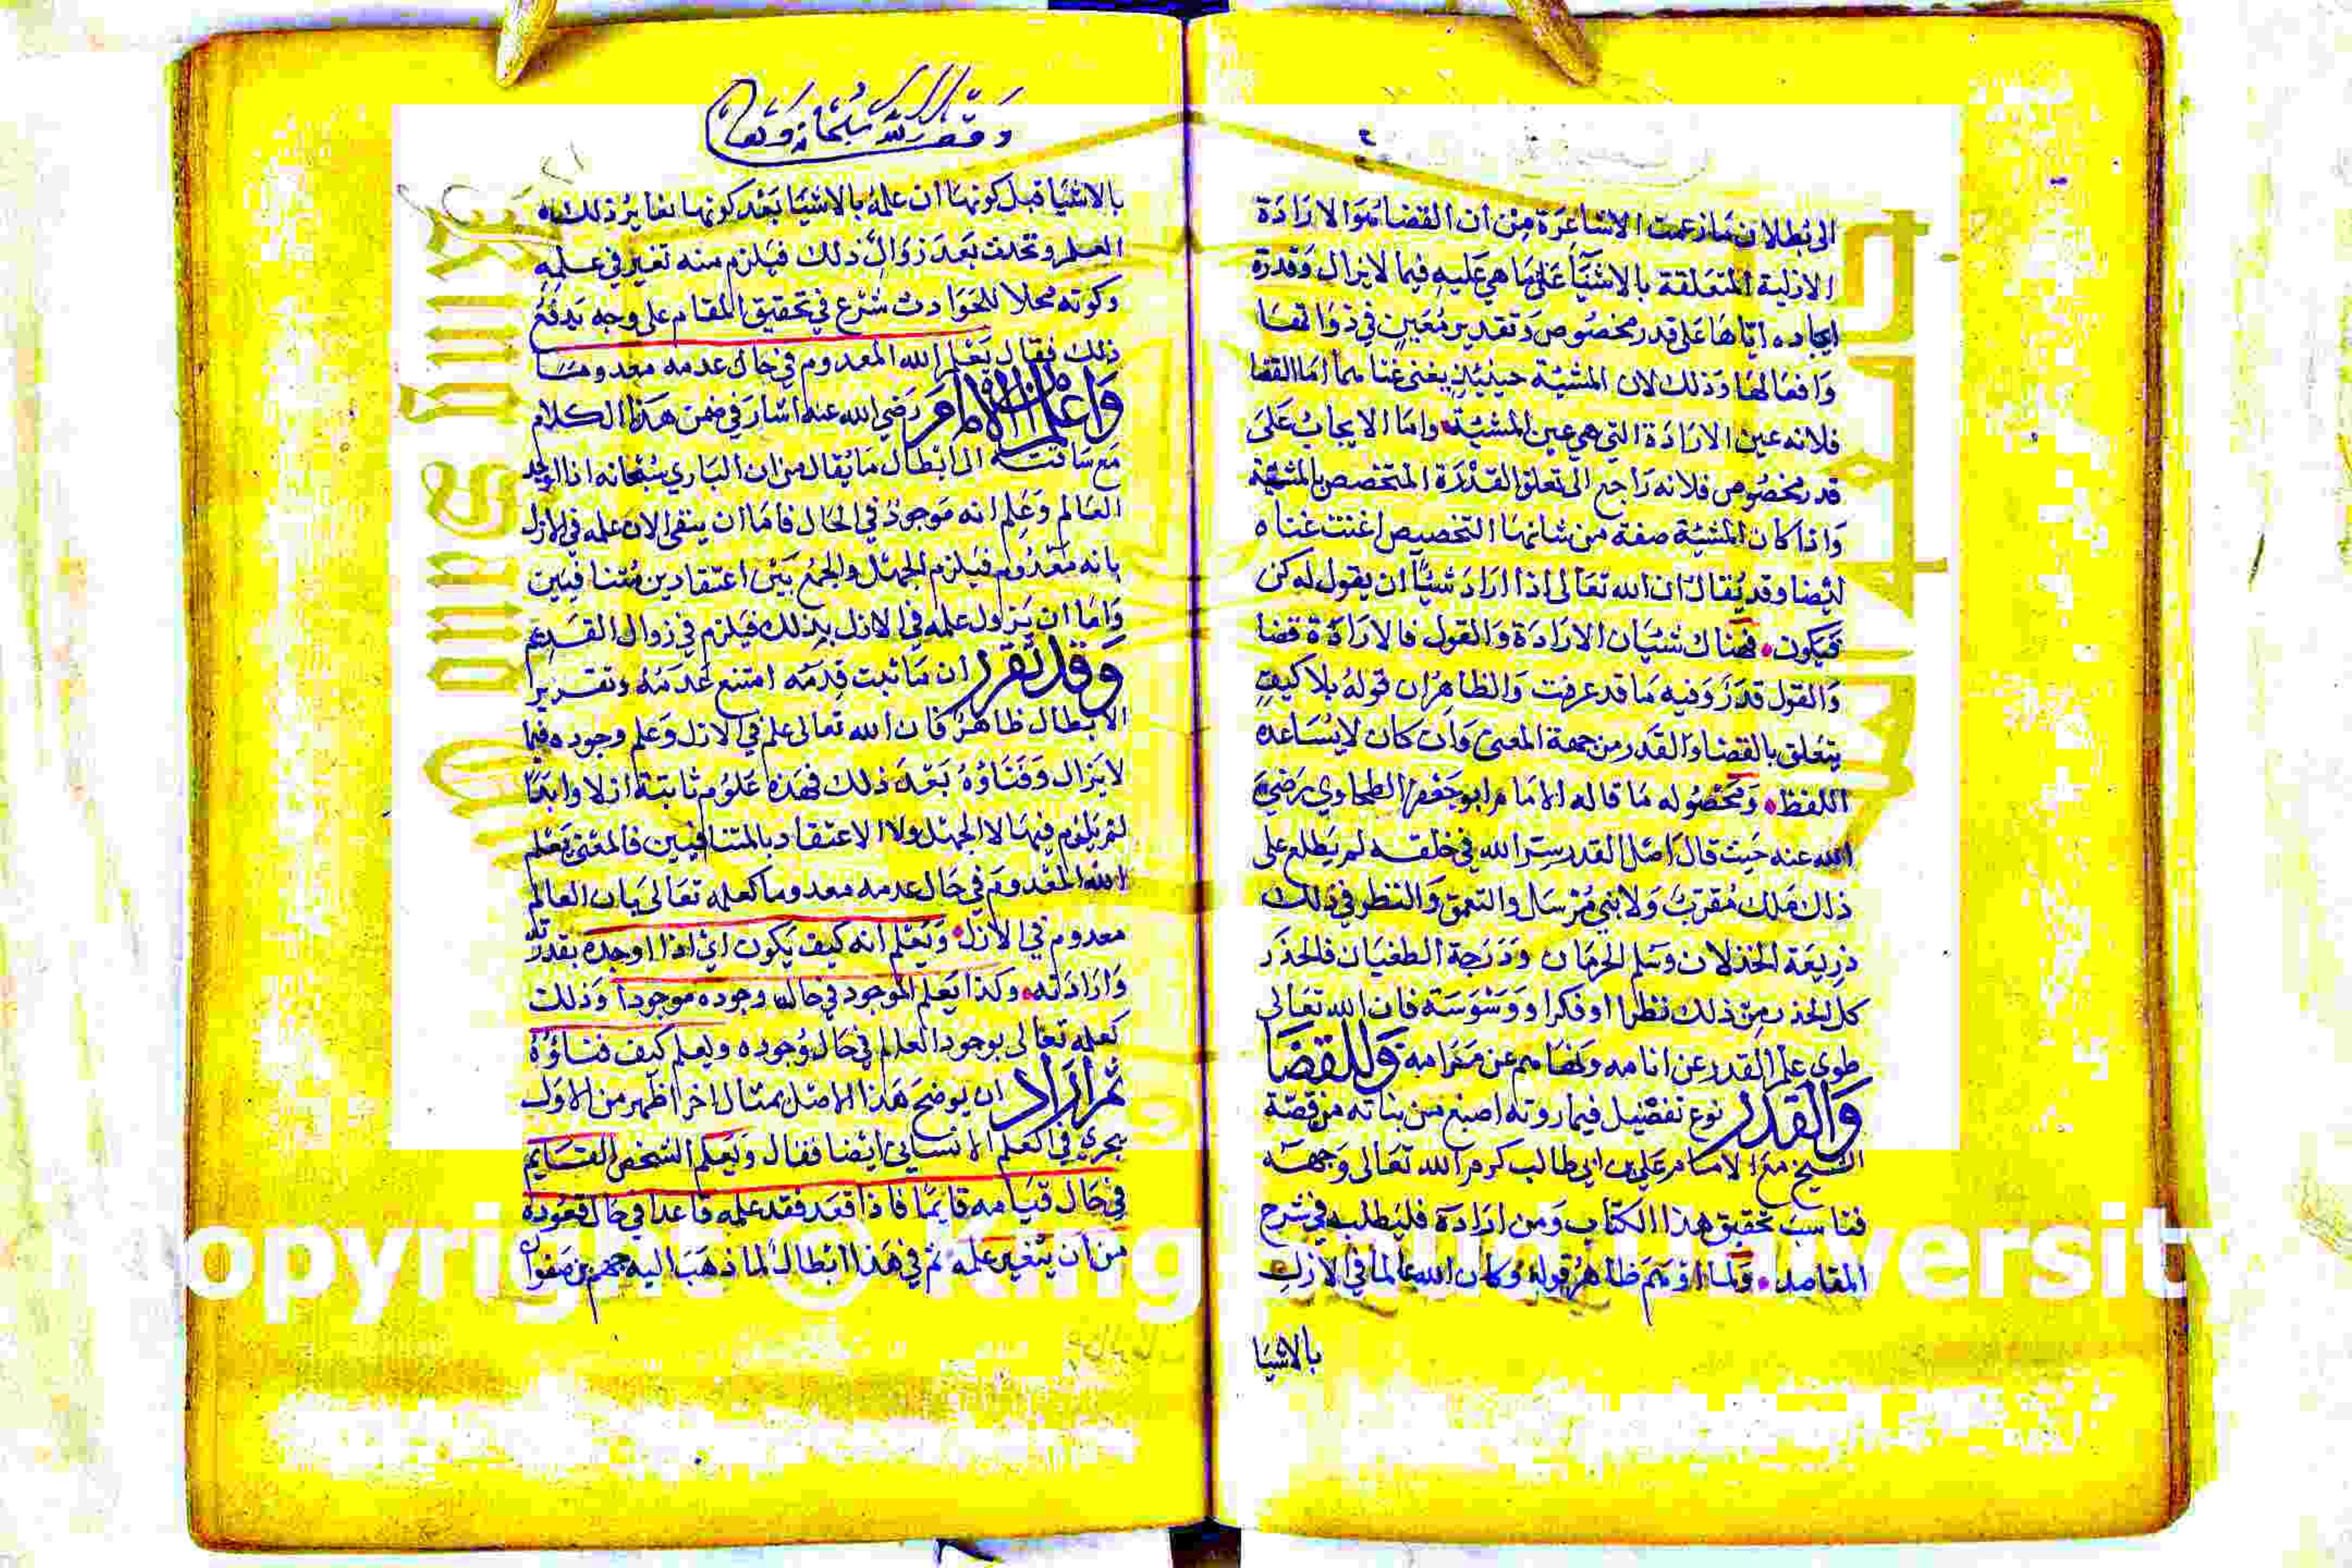 الى بطلان ما زعمت الاشاعرة من ان القضا هو الارادة
الازلية المتعلقة بالاشيآ على ما هي عليه فيما لا يزال وقدرة
ايجاده اياها على قدر مخصوص وتقدير معين في ذواتها
وافعالها وذلك لان المشيّة حينيذٍ يغنى غنا مما اما القضا
فلانه عين الارادة التي هي عين المشيّة واما الايجاب على
قدر مخصوص فلانه راجع الى تعلق القدرة المتخصص بالمشيّة
واذا كان المشيّة صفة من شانها التخصيص اغنت غناه
ايضا وقد يقال ان الله تعالى اذا اراد شيًا ان يقول له كن
فيكون فهناك شيان الارادة والقول فالارادة قضا
والقول قدر وفيه ما قد عرفت والظاهر ان قوله بلا كيفٍ
يتعلق بالقضا والقدر من جهة المعنى وان كان لا يساعده
اللفظ ومحصوله ما قاله الامام ابو جعفر الطحاوي رضي
الله عنه حيث قال اصل القدر سر الله في خلقه لم يطلع على
ذلك ملك مقرب ولا نبي مرسل والتعمق والنظر في ذلك
ذريعة الخذلان وسلم الحرمان ودرجة الطغيان فالحذر
كل الحذر من ذلك نظرا او فكرا ووسوسة فان الله تعالى
طوى علم القدر عن انامه ونهاهم عن مرامه وللقضا
والقدر نوع تفصيل فيما روته اصبغ من بناته من قصة
الشيخ مع الامام علي بن ابي طالب كرم الله تعالى وجهه
فناسب تحقيق هذا الكتاب ومن اراده فليطلبه في شرح
المقاصد ولما اوهم ظاهر قوله وكان الله عالما في الازل
بالاشيا
وقف لله سبحانه وتعالى
بالاشيا قبل كونها ان علمه بالاشيا بعد كونها يغاير ذلك
العلم وتحدث بعد زوال ذلك فيلزم منه تغير في علمه
وكونه محلا للحوادث شرع في تحقيق المقام على وجه يدفع
ذلك فقال يعلم الله المعدوم في حال عدمه معدوما
واعلم ان الامام رضي الله عنه اشار في ضمن هذا الكلام
مع ساقته الى ابطال ما يقال من ان الباري سبحانه اذا اوجد
العالم وعلم انه موجود في الحال فاما ان يبقى الان علمه في الازل
بانه معدوم فيلزم الجهل والجمع بين اعتقادين متنافيين
واما ان يزول علمه في الازل بذلك فيلزم في زوال القديم
وقد تقرر ان ما ثبت قدمه امتنع عدمه وتقرير
الابطال ظاهر فان الله تعالى علم في الازل وعلم وجوده فيما
لا يزال وفناؤه بعد ذلك فهذه علوم ثابتة ازلا وابدا
لم يلزم فيها لا الجهل ولا الاعتقاد بالمتنافيين فالمعنى يعلم
الله المعدوم في حال عدمه معدوما كعلمه تعالى بان العالم
معدوم في الازل ويعلم انه كيف يكون اي اذا اوجده بقدرته
وارادته وكذا يعلم الموجود في حال وجوده موجودا وذلك
كعلمه تعالى بوجود العلم في حال وجوده ويعلم كيف فناؤه
ثم اراد ان يوضح هذا الاصل بمثال اخر اظهر من الاول
يجري في العلم الانساني ايضا فقال ويعلم الشخص القايم
في حال قيامه قايما فاذا قعد فقد علمه قاعدا في حال قعوده
من ان يتغير علمه ثم في هذا ابطال لما ذهب اليه جهم بن صفوان